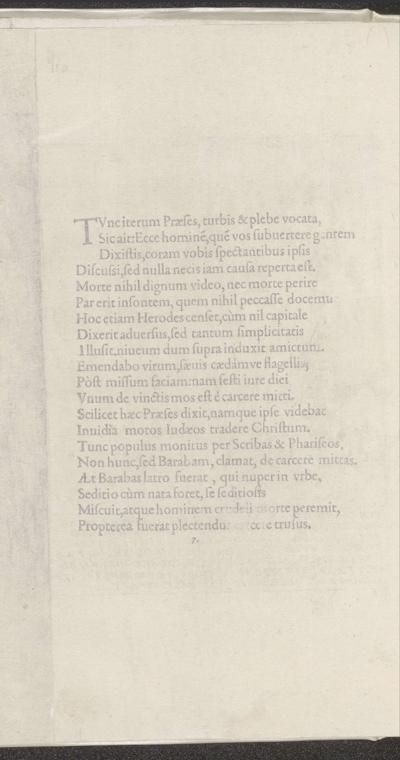 TVnc iterum Præses, turbis & plebe vocata,
Sic ait: Ecce hominē, quē vos subuertere gentem
Dixistis, coram vobis spectantibus ipsis
Discussi, sed nulla necis iam causa reperta est.
Morte nihil dignum video, nec morte perire
Par erit insontem, quem nihil peccasse docemur
Hoc etiam Herodes censet, cùm nil capitale
Dixerit aduersus, sed tantum simplicitatis
Illusit, niueum dum supra induxit amictum.
Emendabo virum, sæuis cædámve flagellis,
Pòst missum faciam: nam festi iure diei
Vnum de vinctis mos est è carcere mitti.
Scilicet hæc Præses dixit, namque ipse videbat
Inuidia motos Iudæos tradere Christum.
Tunc populus monitus per Scribas & Phariseos,
Non hunc, sed Barabam, clamat, de carcere mittas.
Æt Barabas latro fuerat, qui nuper in vrbe,
Seditio cùm nata foret, se seditiosis
Miscuit, atque hominem crudeli morte peremit,
Propterea fuerat plectendus trusus.
7.